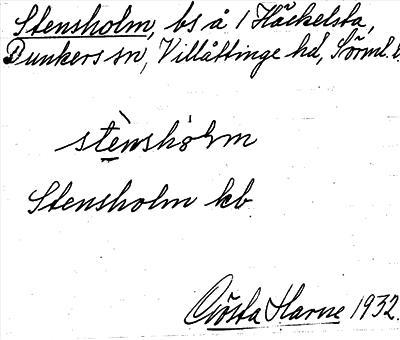 Stensholm, bs å 1 Häckelsta,
Dunkers sn, Villåttinge hd, Sörml. l.
stènshólm
Stensholm kb
Gösta Harne 1932.